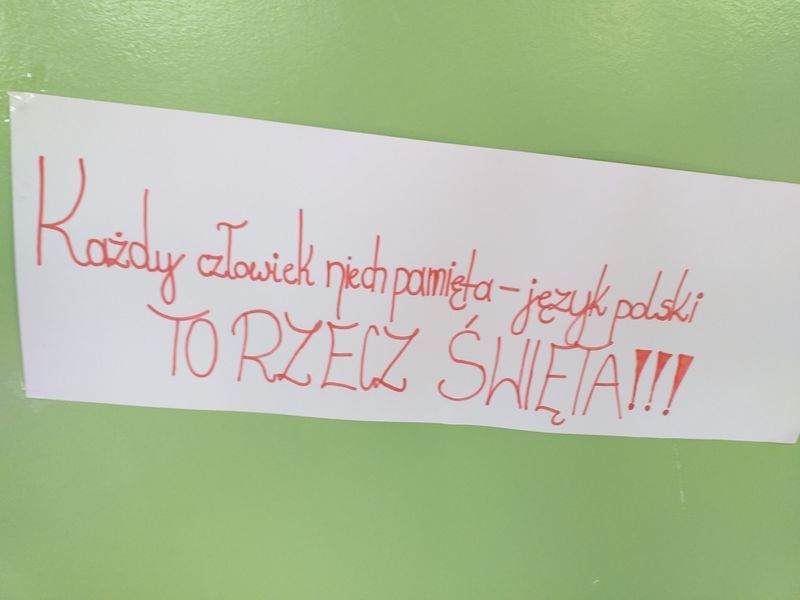 Każdy człowiek niech pamięta – język polski
TO RZECZ ŚWIĘTA!!!